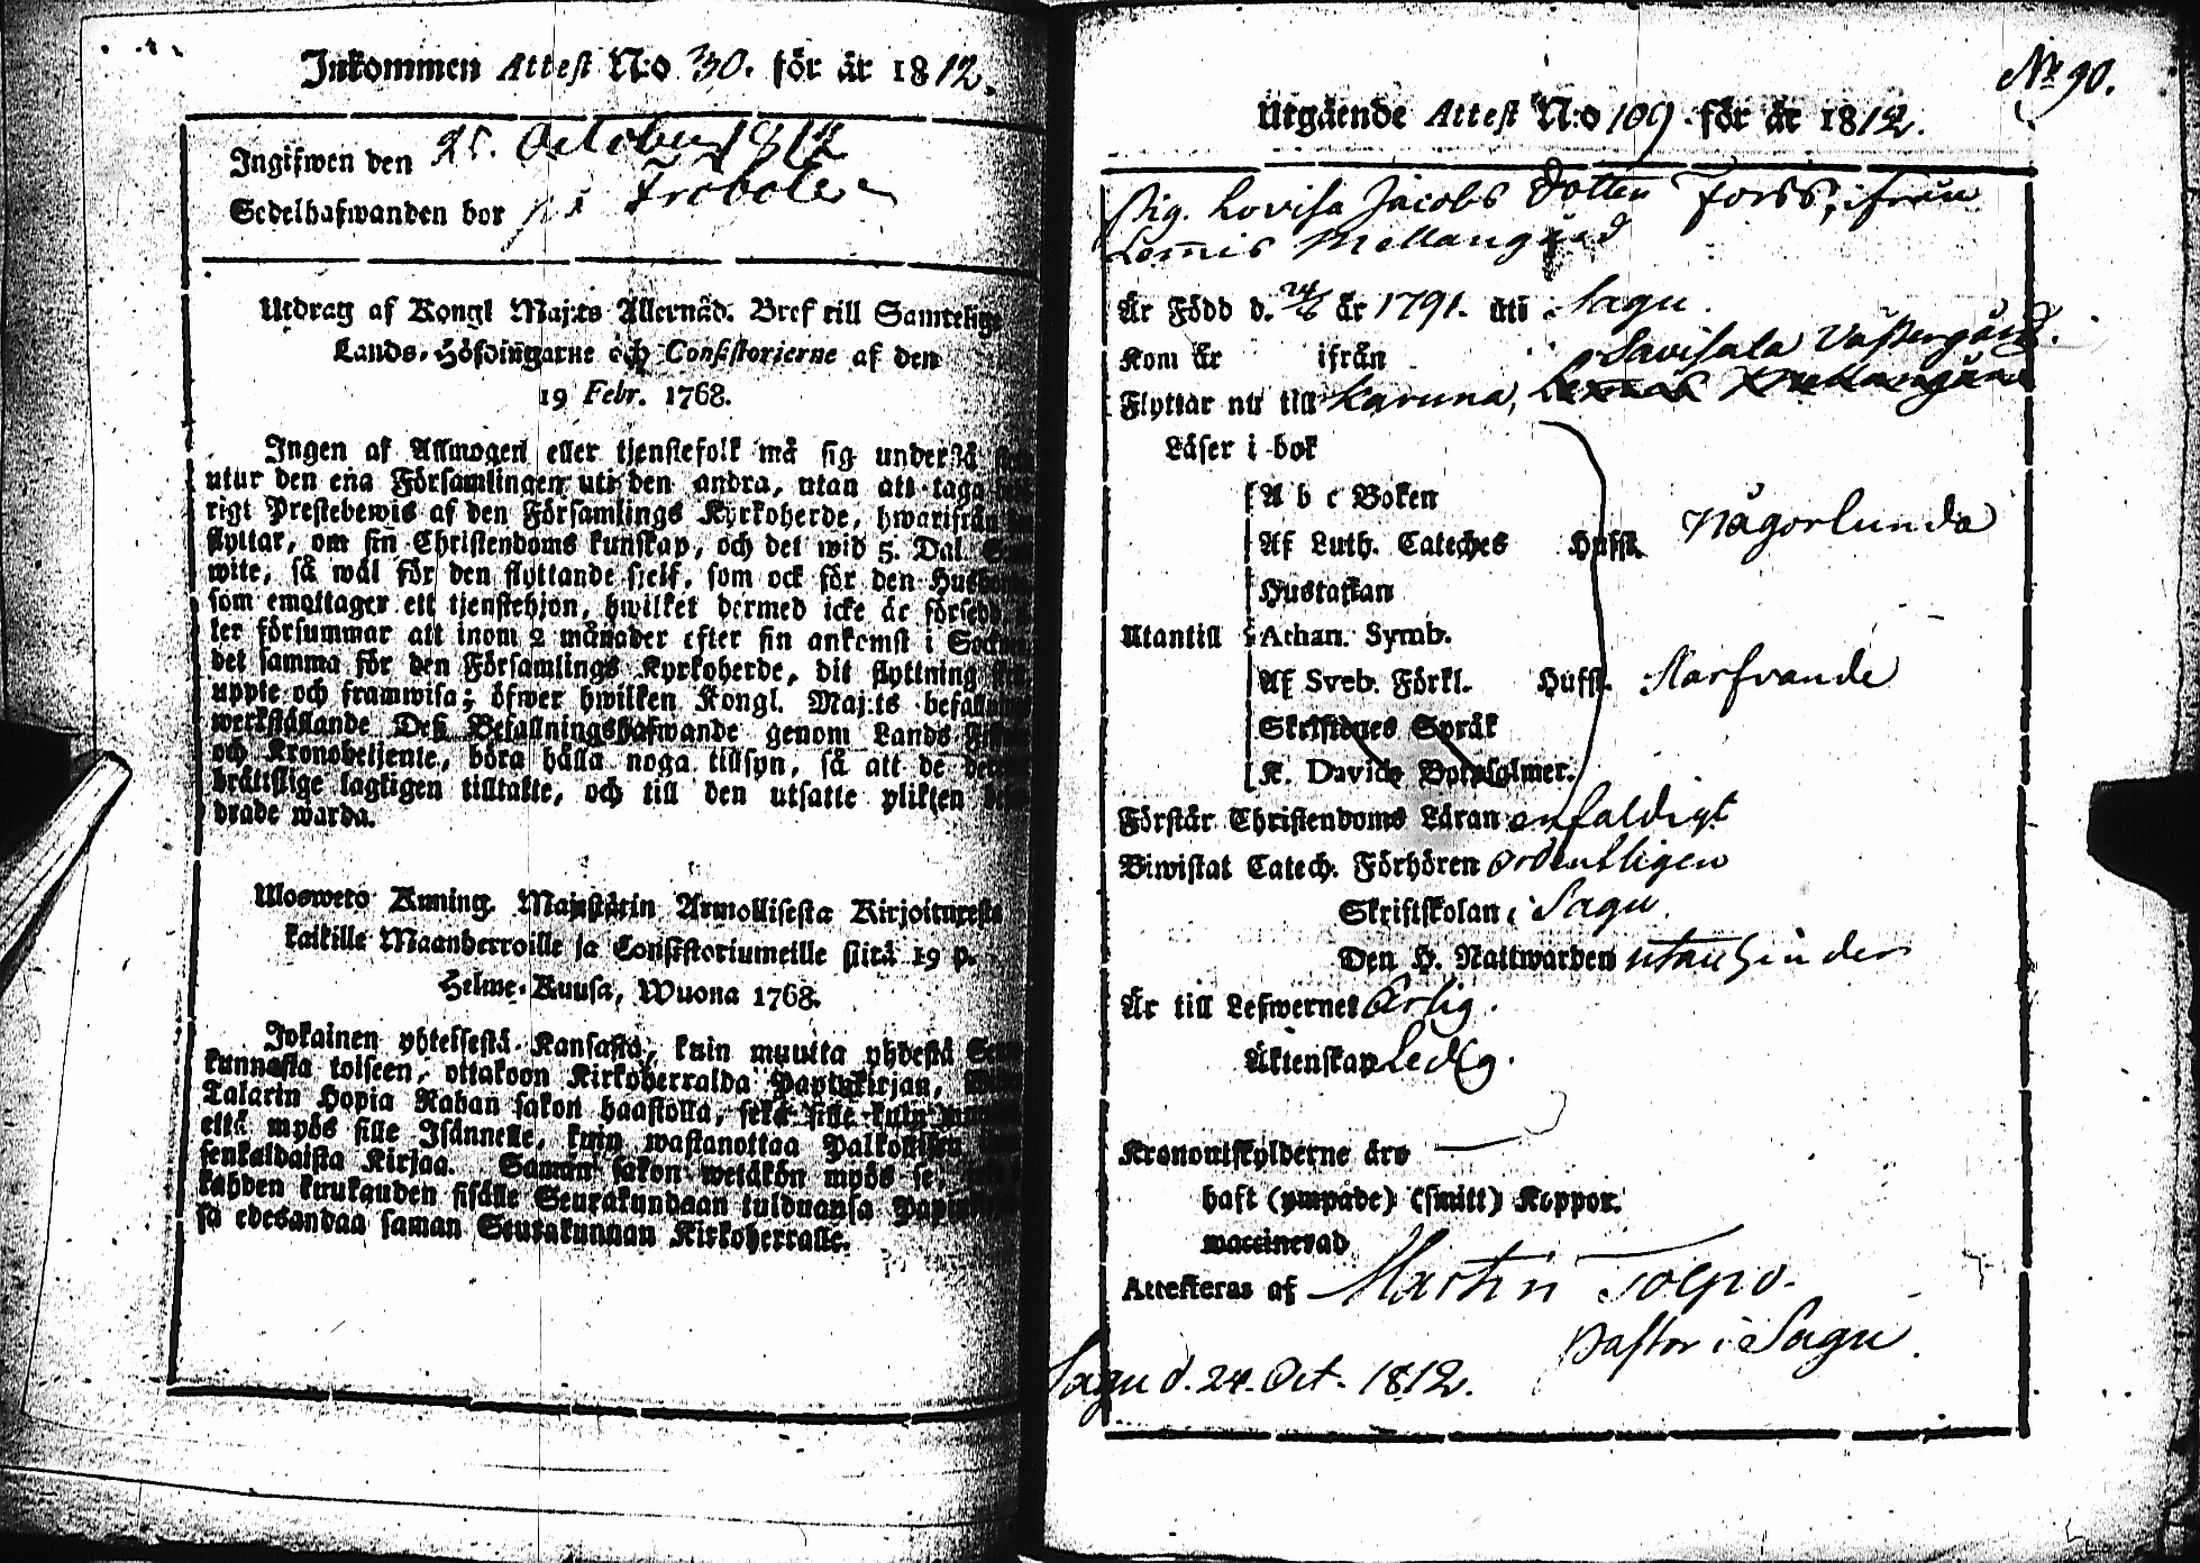 Inkommen Attest N:o 30. för år 1812.
Ingifwen den 25. October 1812
Sedelhafwanden bor på Fröböle
Utdrag af Kongl Maj:ts Allernåd. Bref till Samtelige
Lands-Höfdingarne och Consistorierne af den
19 Febr. 1768.
Ingen af Allmogen eller tjenstefolk må sig understå
utur den ena Församlingen uti den andra, utan att taga
rigt Prestebewis af den Församlings Kyrkoherde, hwarifrån
flyttar, om sin Christendoms kunskap, och det wid 5. Dal.
wite, så wäl för den flyttande sjelf, som ock för den
som emottager ett tjenstehjon, hwilket dermed icke är försedd
ler försummar att inom 2 månader efter sin ankomst i
det samma för den Församlings Kyrkoherde, dit flyttning
uppte och framwisa; öfwer hwilken Kongl. Maj:ts befallning
werkställande Deß Befallningshafwande genom Lands
och Kronobetjente, böra hålla noga tillsyn, så att de
brättslige lagligen tilltalte, och till den utsatte plikten
drade warda.
Ulosweto Kuning. Majestätin Armollisesta Kirjoituxesta
kaikille Maanherroille ja Consistoriumeille siitä 19 p.
Helme-Kuusa, Wuona 1768.
Jokainen yhteisestä Kansasta, kuin muutta yhdestä
kunnasta toiseen, ottakoon Kirkoherralda Papinkirjan,
Talarin Hopia Rahan sakon haastolla, sekä sille kuin
että myös sille Isännelle, kuin wastanottaa Palkollisen
senkaldaista Kirjaa. Saman sakon wetäkön myös se,
kahden kuukauden sisälle Seurakundaan tulduansa
sa edesandaa saman Seurakunnan Kirkoherralle.
No 90.
Utgående Attest N:o 109 för år 1812.
Pig. Lovisa Jacobs Dotter Forss, ifrån
Lemis Mellangård
Är Född d. 24/6 år 1791. uti Sagu.
Kom år ifrån
Savisala Västergård.
Flyttar nu till Karuna,
Läser i bok
A b c Boken
Af Luth. Cateches Hufst. Någorlunda
Hustaflan
Utantill Athan. Symb.
Af Sveb. Förkl. Hufst. Narfvande
Skriftenes Språk
K. Davids Botpsalmer.
Förstår Christendoms Läran enfaldigt
Biwistat Catech. Förhören ordentligen
Skriftskolan i Sagu.
Den H. Nattwarden utan hinder
Är till Lefwernet Ärlig.
Äktenskap Ledig.
Kronoutskylderne äro
haft (ympade) (smitt) Koppor.
waccinerad
Attesteras af Martin Tolpo.
Pastor i Sagu.
Sagu d. 24. Oct. 1812.